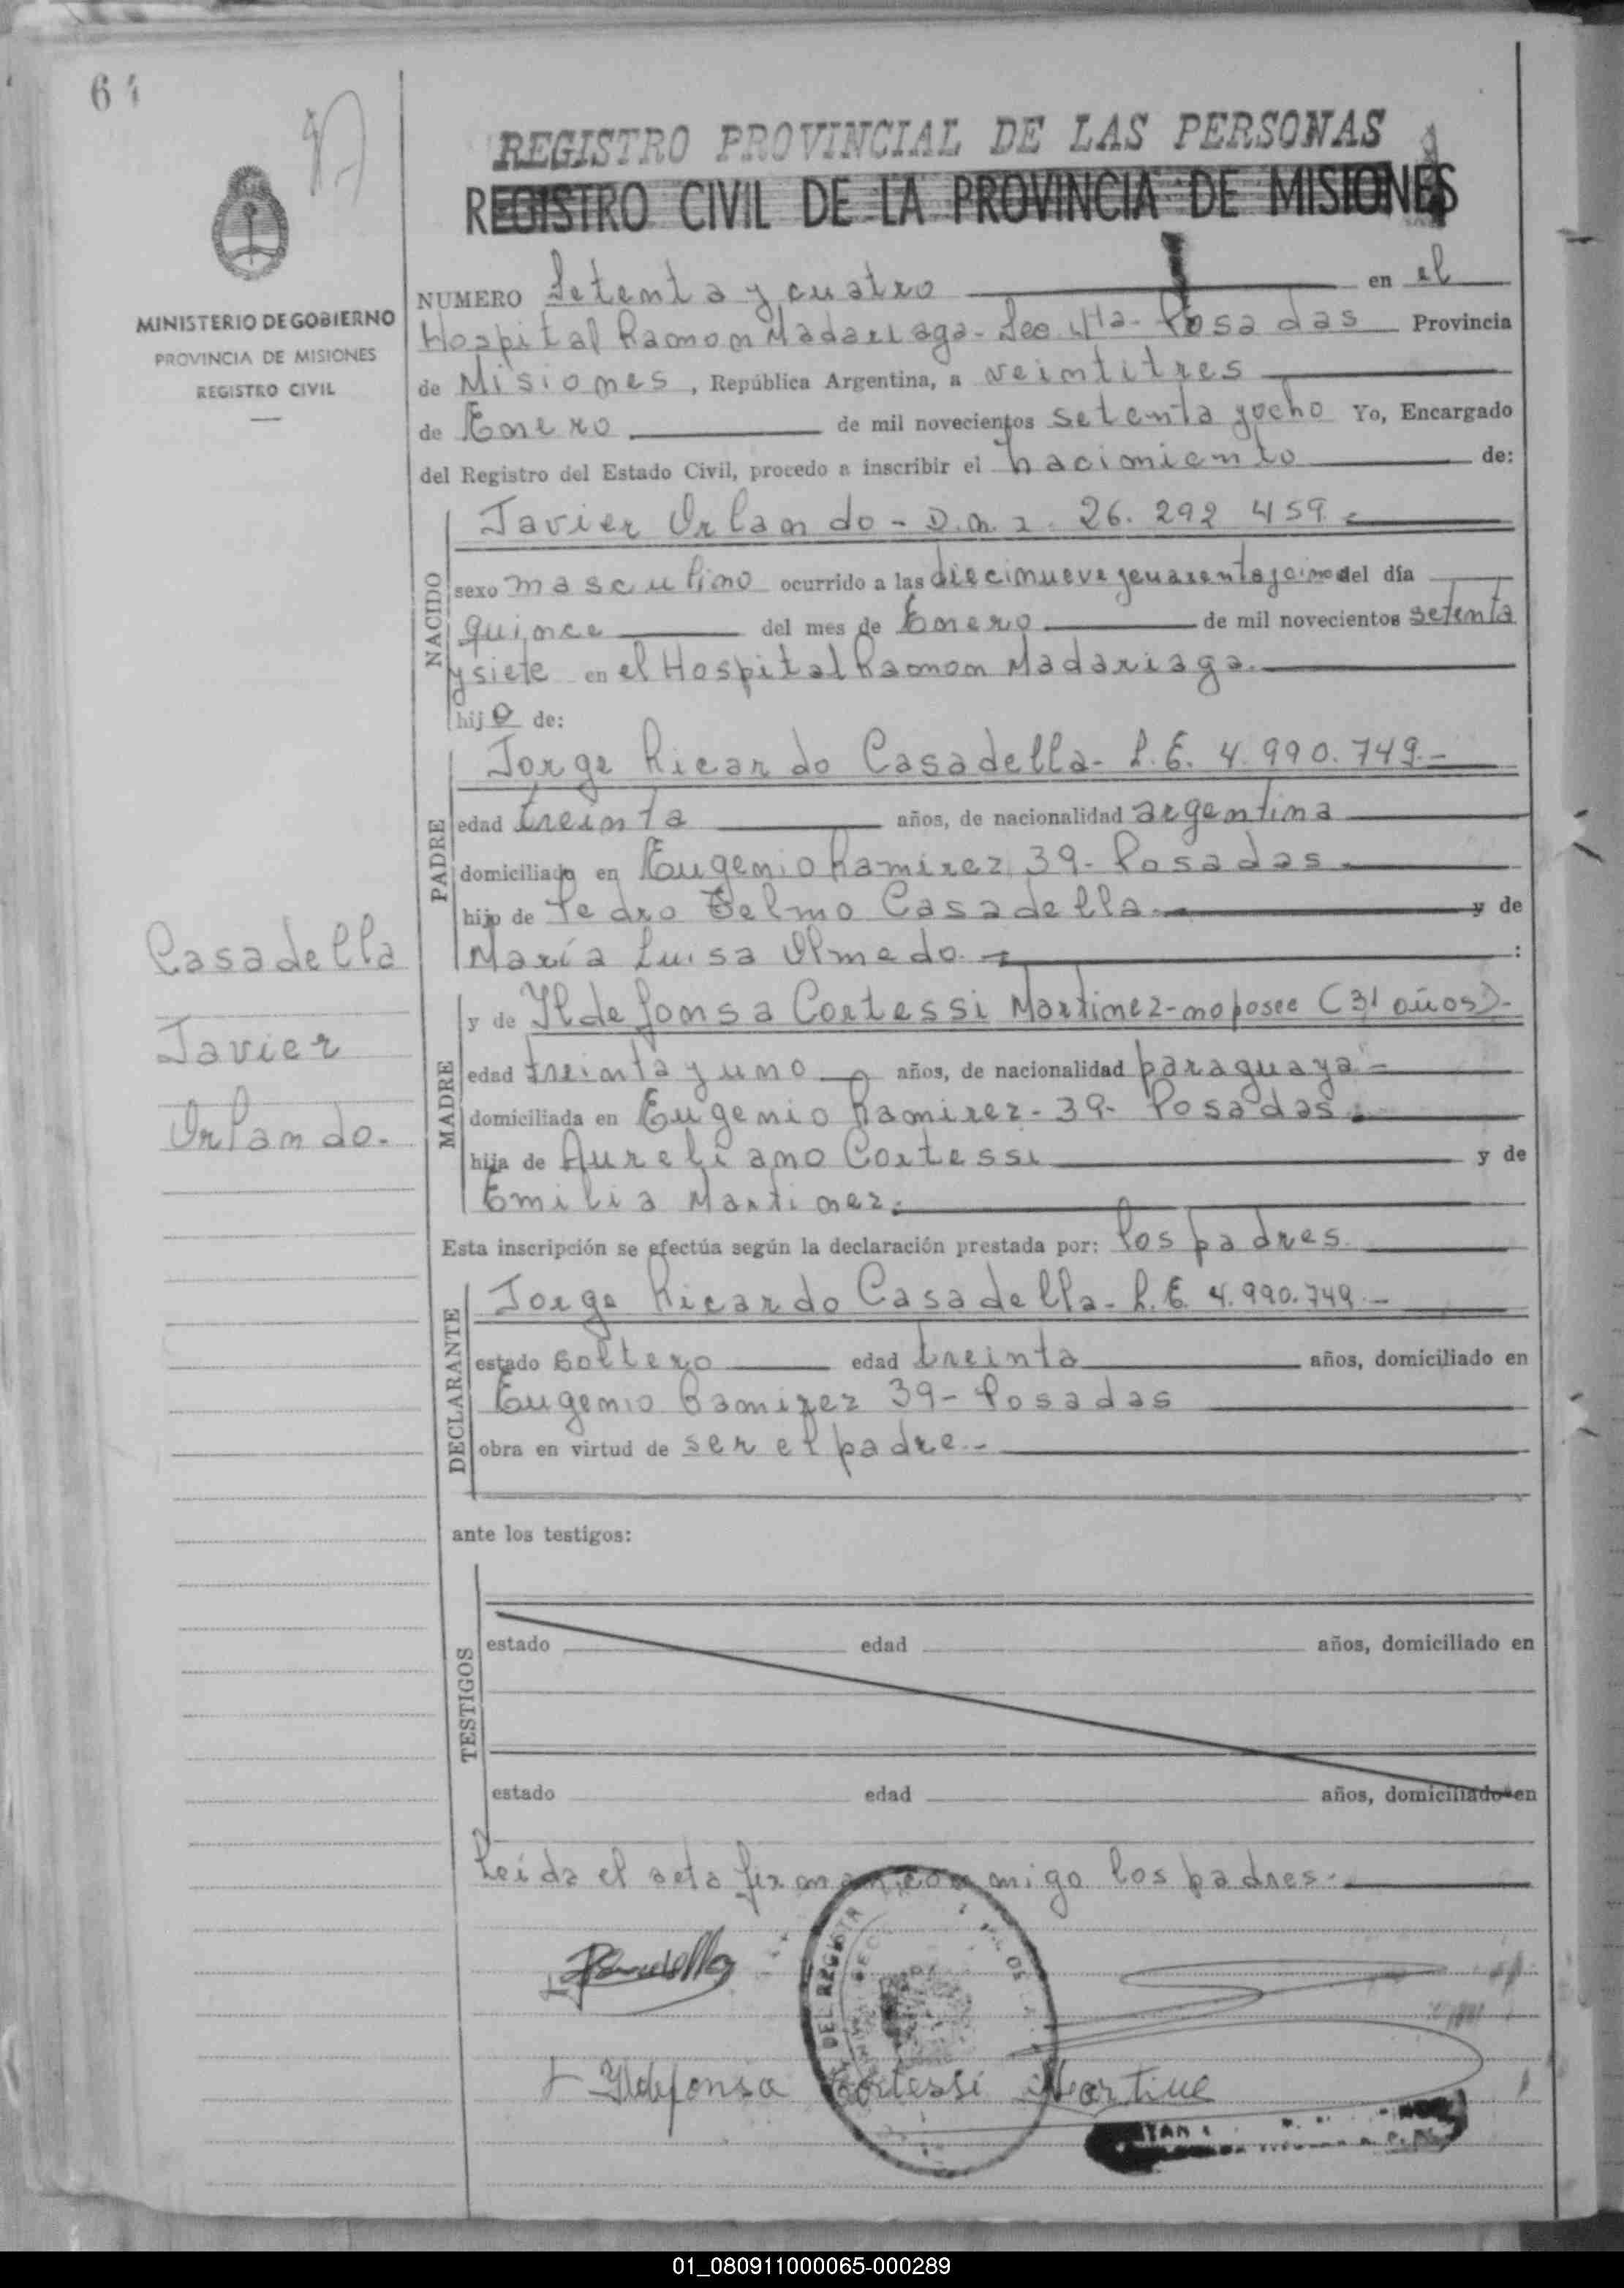 64
REGISTRO PROVINCIAL DE LAS PERSONAS
REGISTRO CIVIL DE LA PROVINCIA DE MISIONES
MINISTERIO DE GOBIERNO
PROVINCIA DE MISIONES
REGISTRO CIVIL
NUMERO Setenta y cuatro en el
Hospital Ramon Madariaga - Sec 4ta - Posadas Provincia
de Misiones, República Argentina, a veintitres
de Enero de mil novecientos setenta y ocho Yo, Encargado
del Registro del Estado Civil, procedo a inscribir el nacimiento de:
NACIDO
Javier Orlando - D.n.i. 26.292 459
sexo masculino ocurrido a las diecinueve y cuarenta y cinco del día
quince del mes de Enero de mil novecientos setenta
y siete en el Hospital Ramon Madariaga.
hijo de:
PADRE
Jorge Ricardo Casadella - L.E. 4.990.749.-
edad treinta años, de nacionalidad argentina
domiciliado en Eugenio Ramirez 39 - Posadas
hijo de Pedro Telmo Casadella y de
María Luisa Olmedo. :
MADRE
y de Ildefonsa Cortessi Martinez - no posee (31 años).-
edad treinta y uno años, de nacionalidad paraguaya -
domiciliada en Eugenio Ramirez - 39 - Posadas.
hija de Aureliano Cortessi y de
Emilia Martinez.
Casadella
Javier
Orlando.
Esta inscripción se efectúa según la declaración prestada por: los padres
DECLARANTE
Jorge Ricardo Casadella - L.E. 4.990.749 -
estado soltero edad treinta años, domiciliado en
Eugenio Ramirez 39 - Posadas
obra en virtud de ser el padre.-
ante los testigos:
TESTIGOS
estado edad años, domiciliado en
estado edad años, domiciliado en
Leida el acta firman conmigo los padres.
DEL REGISTR
Ildefonsa Cortessi Martine
01_080911000065-000289